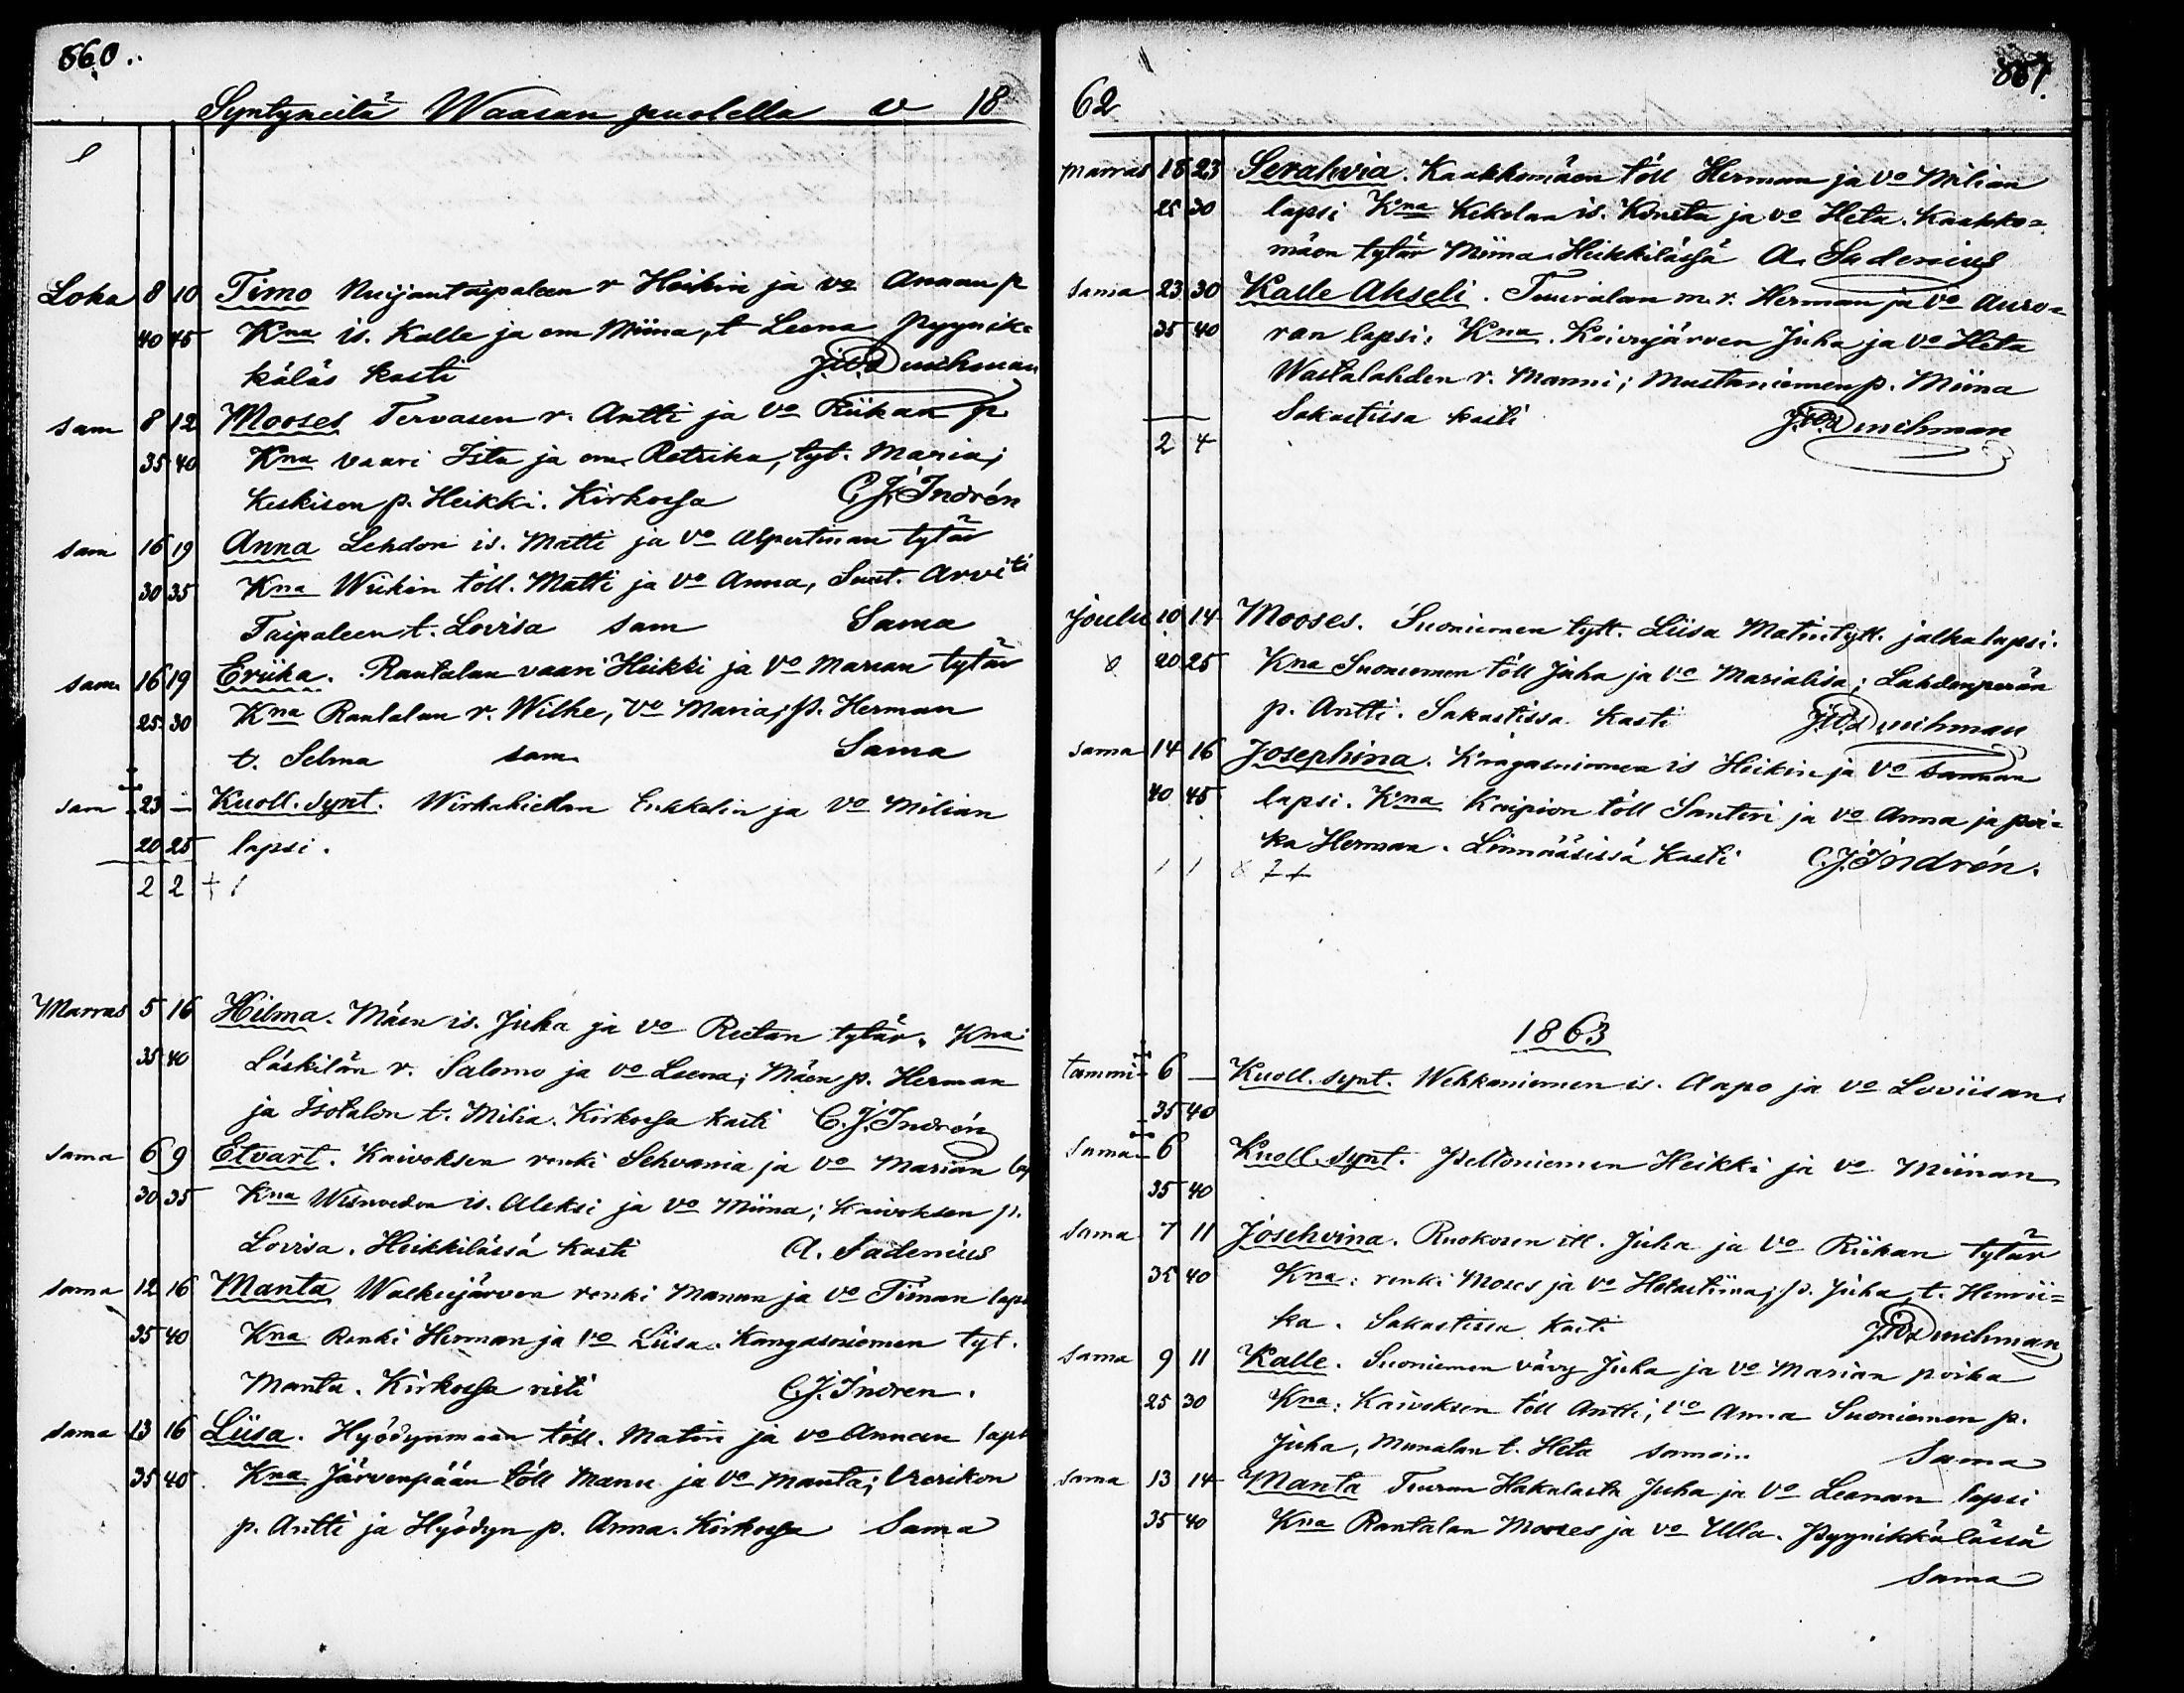 860.
Syntyneitä Waasan puolella v 18
Loka 8 10 Timo Nuijantaipaleen r Heikin ja vo Annan p
40 45 Kna is. Kalle ja em Miina, t Leena Pyynik=
käläs kasti J.W. Durchman
sam 8 12 Mooses Tervasen r. Antti ja vo Riikan p.
35 40 Kna vaari Ista ja em. Retrika, tyt. Maria;
Keskisen p. Heikki. Kirkossa C.J. Indrén
sam 16 19 Anna Lehdon is. Matti ja vo Alpertinan tytär
30 35 Kna Wiikin töll. Matti ja vo Anna, Suut. Arviti
Taipaleen t. Lovisa sam Sama
sam 16 19 Eriika. Rantalan vaari Heikki ja vo Marian tytär
25 30 Kna Rantalan r. Wilhe, vo Maria; p. Herman
t. Selma sam Sama
sam 23 — Kuoll. synt. Wirkakiellan Enkkelin ja vo Milian
20 25 lapsi.
2 2 + 1
Marras 5 16 Hilma. Mäen is. Juha ja vo Reetan tytär. Kna
35 40 Läskilän r. Salomo ja vo Leena; Mäen p. Herman
ja Isotalon t. Milia. Kirkossa kasti C.J. Indrén
sama 6 9 Etvart. Kaivoksen renki Sehvania ja vo Marian lap
30 35 Kna Wisuveden is. Aleksi ja vo Miina; Kaivoksen p.
Lovisa. Heikkilässä kasti A. Sadenius
sama 12 16 Manta Walkeejärven renki Manun ja vo Tiinan laps
35 40 Kna Renki Herman ja vo Liisa. Kangasniemen tyt.
Manta. Kirkossa risti C.J. Indren.
sama 13 16 Liisa. Hyödynmaan töll. Matin ja vo Annan laps
35 40 Kna Järvenpään töll Manu ja vo Manta; Vrerikon
p. Antti ja Hyödyn p. Anna. Kirkossa Sama
62 861.
Marras 18 23 Serahvia. Kaakkomäen töll Herman ja vo Milian
25 30 lapsi Kna Kekolan is. Konsta ja vo Heta. Kaakko=
mäen tytär Miina. Heikkilässä A. Sadenius
sama 23 30 Kalle Akseli. Tuuralan m. r. Herman ja vo Auro=
35 40 ran lapsi. Kna. Koivujärven Juha ja vo Heta
Wastalahden r. Manni; Mustaniemen p. Miina
Sakastissa kasti J.W. Durchman
2 4
Joulu 10 14 Mooses. Suoniemen tytt. Liisa Matintytt. jalkalapsi.
20 25 Kna Suoniemen töll Juha ja vo Marialisa; Lahdenperän
p. Antti. Sakastissa kasti J.W. Durchman
sama 14 16 Josephina. Kangasniemen is Heikin ja vo Sannan
40 45 lapsi. Kna Knipion töll Santeri ja vo Anna ja poi=
ka Herman. Linnääsissä kasti C.J. Indrén.
1 1
1863
tammi 6 — Kuoll. synt. Wehkaniemen is. Aapo ja vo Loviisan.
35 40
sama 6 Kuoll. synt. Peltoniemen Heikki ja vo Miinan
35 40
sama 7 11 Josehvina. Ruokosen itl. Juha ja vo Riikan tytär
35 40 Kna: renki Moses ja vo Hetastiina; p. Juha, t. Henrii=
ka. Sakastissa kasti J.W. Durchman
sama 9 11 Kalle. Suoniemen vävy Juha ja vo Marian poika
25 30 Kna: Kaivoksen töll Antti; vo Anna Suoniemen p.
Juha, Munalan t. Heta samoin Sama
sama 13 14 Manta Tuuran Hakalasta Juha ja vo Leenan lapsi
35 40 Kna Rantalan Mooses ja vo Ulla. Pyynikkälässä
Sama